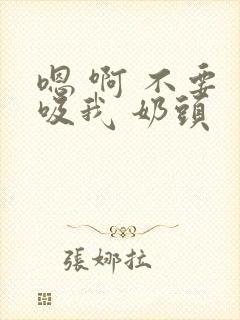 嗯 啊 不要
吸我 奶頭
張娜拉